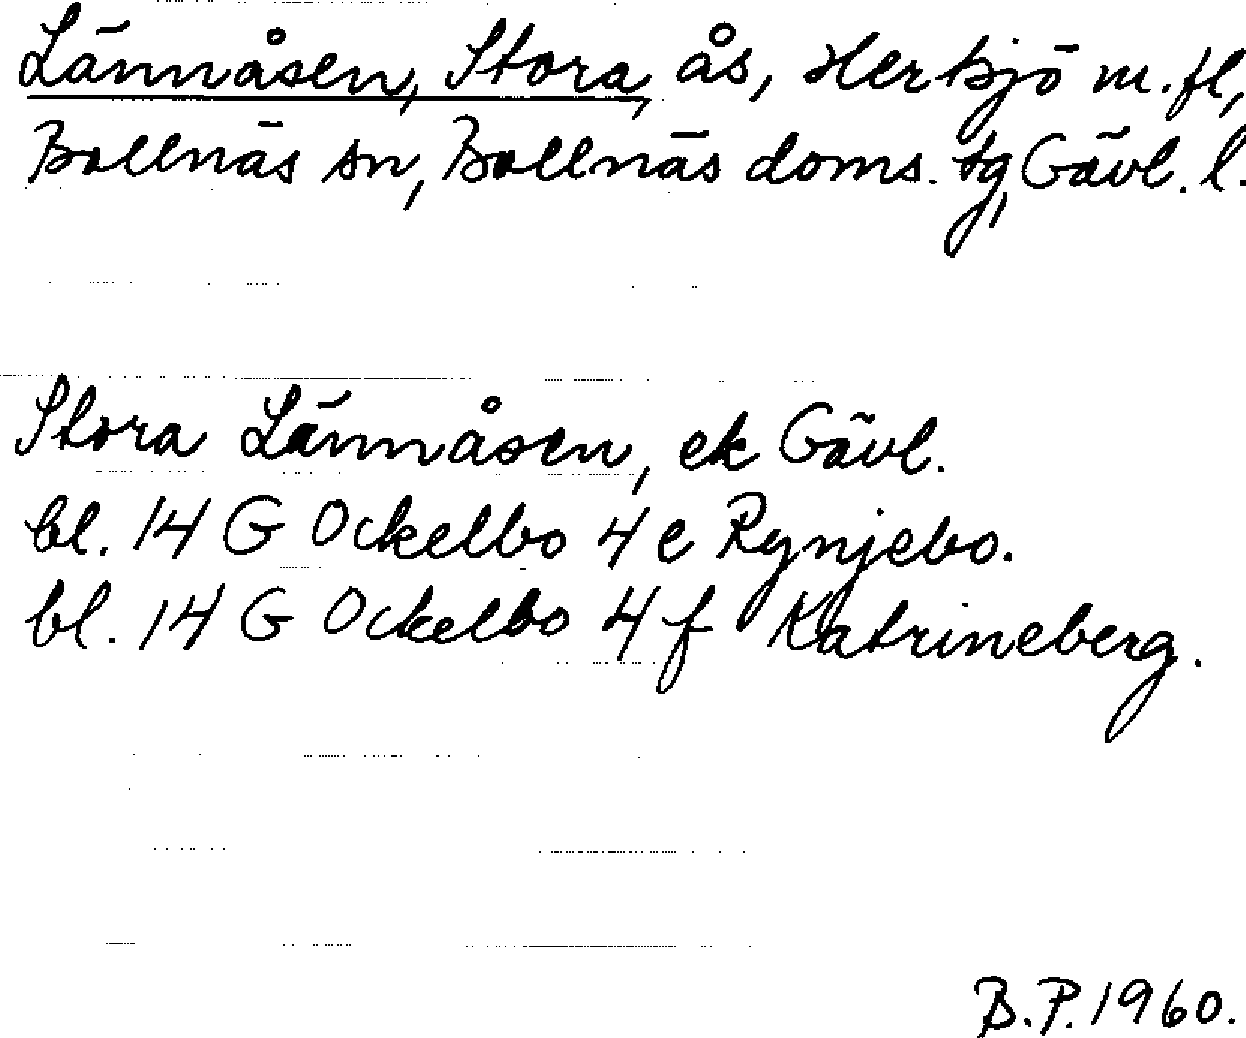 Lännåsen, Stora, ås, Herte jö m.fl,
Bollnäs sn, Bollnäs doms. tg, Gävl. l.
Stora Lännåsen, ek Gävl.
bl. 14 G Ockelbo 4 e Rynjebo.
bl. 14 G Ockelbo 4 f Katrineberg.
B.P. 1960.